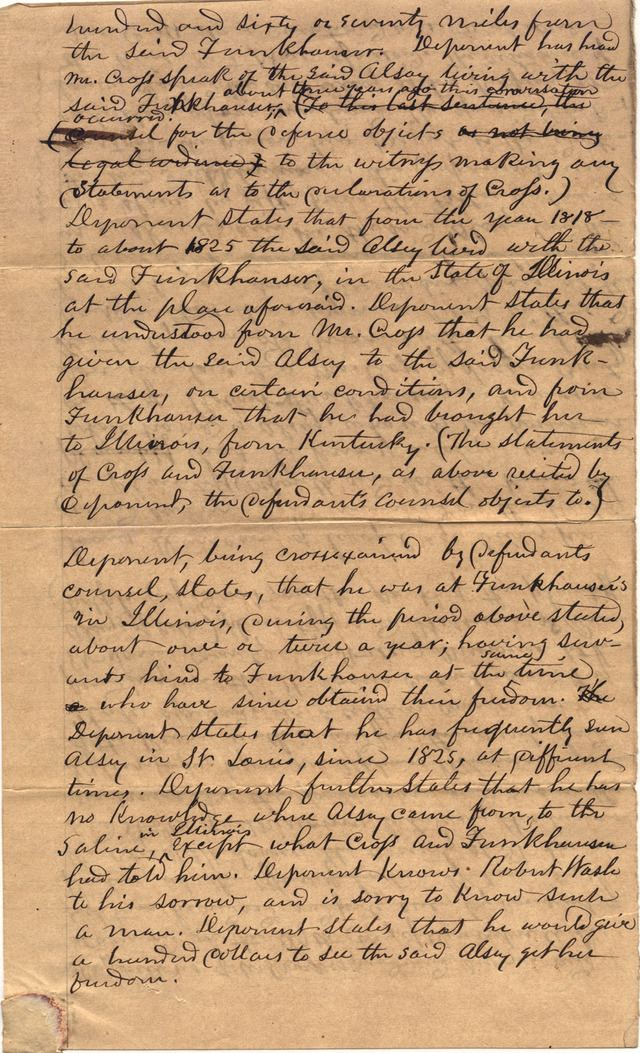 hundred and sixty or seventy miles from
the said Funkhauser. Deponent has heard
Mr. Cross speak of the said Alsey living with the
about three years ago this conversation
said Funkhauser, (To this last sentence, the
occurred.
Counsel for the Defence objects as not being
legal evidence) to the witness making any
Statements as to the declarations of Cross.)
Deponent states that from the year 1818
to about 1825 the said Alsey lived with the
said Funkhauser, in the State of Illinois
at the place aforesaid. Deponent states that
he understood from Mr. Cross that he had
given the said Alsey to the said Funk-
hauser, on certain conditions, and from
Funkhauser that he had brought her
to Illinois, from Kentucky. (The statements
of Cross and Funkhauser, as above recited by
Deponent, the Defendants Counsel objects to.)
Deponent, being crossexained by Defendants
counsel, states, that he was at Funkhauser's
in Illinois, during the period above stated,
about once or twice a year; having serv-
same
ants hired to Funkhauser at the time,
who have since obtained their freedom. The
Deponent states that he has frequently seen
Alsey in St. Louis, since 1825, at different
times. Deponent further States that he has
no Knowledge where Alsey came from, to the
in Illinois
Saline, except what Cross and Funkhauser
had told him. Deponent Knows Robert Wash
to his sorrow, and is sorry to Know such
a man. Deponent states that he would give
a hundred dollars to see the said Alsey get her
freedom.